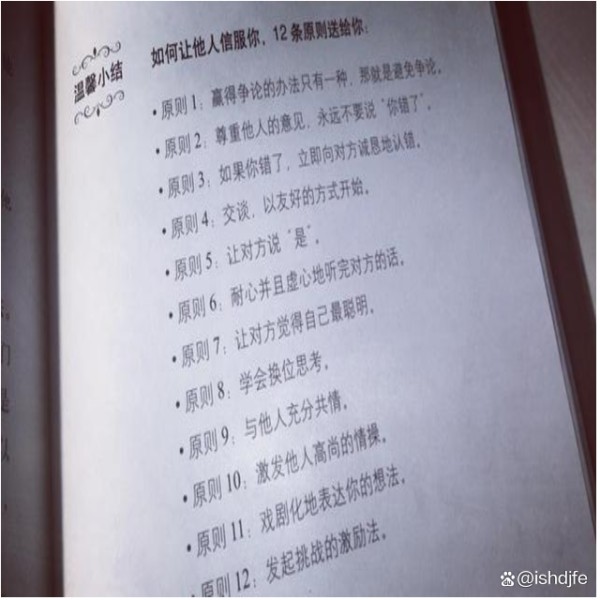 温馨小结
如何让他人信服你，12条原则送给你：
• 原则1：赢得争论的办法只有一种，那就是避免争论。
• 原则2：尊重他人的意见，永远不要说“你错了”。
• 原则3：如果你错了，立即向对方诚恳地认错。
• 原则4：交谈，以友好的方式开始。
• 原则5：让对方说“是”。
• 原则6：耐心并且虚心地听完对方的话。
• 原则7：让对方觉得自己最聪明。
• 原则8：学会换位思考。
• 原则9：与他人充分共情。
• 原则10：激发他人高尚的情操。
• 原则11：戏剧化地表达你的想法。
• 原则12：发起挑战的激励法。
们
是
以
@ishdjfe